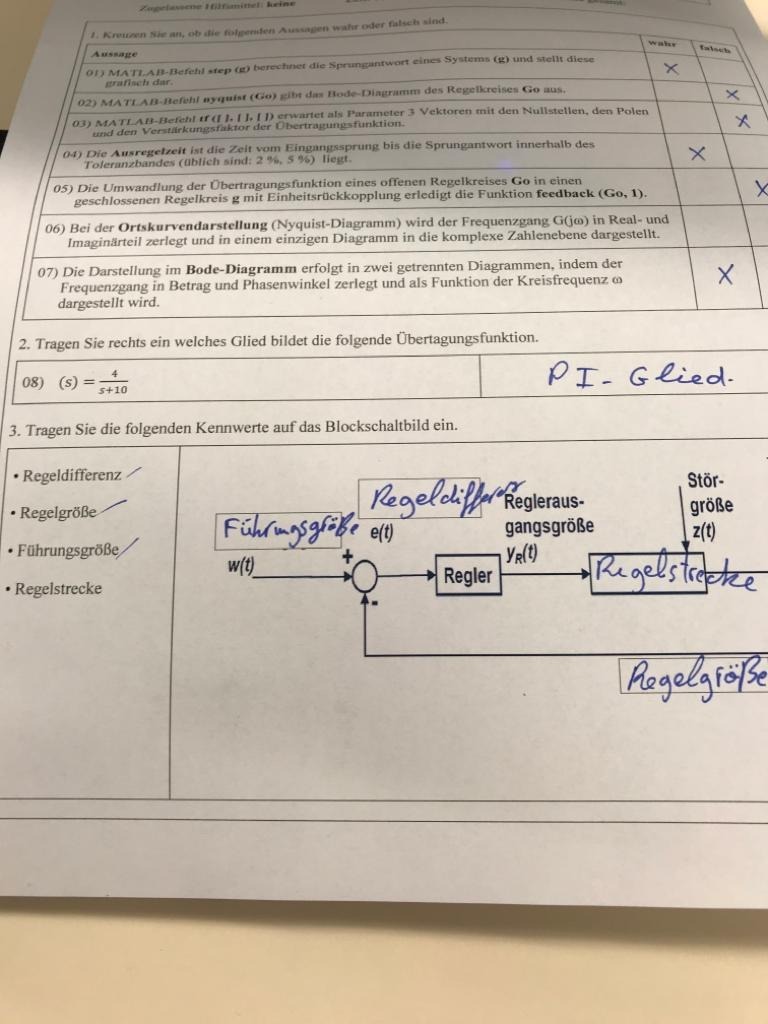 Zugelassene Hilfsmittel: keine
1. Kreuzen Sie an, ob die folgenden Aussagen wahr oder falsch sind.
Aussage wahr falsch
01) MATLAB-Befehl step (g) berechnet die Sprungantwort eines Systems (g) und stellt diese
grafisch dar. X
02) MATLAB-Befehl nyquist (Go) gibt das Bode-Diagramm des Regelkreises Go aus. X
03) MATLAB-Befehl tf ([ ], [ ], [ ]) erwartet als Parameter 3 Vektoren mit den Nullstellen, den Polen
und den Verstärkungsfaktor der Übertragungsfunktion. X
04) Die Ausregelzeit ist die Zeit vom Eingangssprung bis die Sprungantwort innerhalb des
Toleranzbandes (üblich sind: 2 %, 5 %) liegt. X
05) Die Umwandlung der Übertragungsfunktion eines offenen Regelkreises Go in einen
geschlossenen Regelkreis g mit Einheitsrückkopplung erledigt die Funktion feedback (Go, 1). X
06) Bei der Ortskurvendarstellung (Nyquist-Diagramm) wird der Frequenzgang G(jω) in Real- und
Imaginärteil zerlegt und in einem einzigen Diagramm in die komplexe Zahlenebene dargestellt.
07) Die Darstellung im Bode-Diagramm erfolgt in zwei getrennten Diagrammen, indem der
Frequenzgang in Betrag und Phasenwinkel zerlegt und als Funktion der Kreisfrequenz ω
dargestellt wird. X
2. Tragen Sie rechts ein welches Glied bildet die folgende Übertagungsfunktion.
08) (s) = 4/(s+10) PI-Glied.
3. Tragen Sie die folgenden Kennwerte auf das Blockschaltbild ein.
• Regeldifferenz
• Regelgröße
• Führungsgröße
• Regelstrecke
Führungsgröße
w(t)
Regeldifferenz
e(t)
+
-
Regler
Regleraus-
gangsgröße
yR(t)
Stör-
größe
z(t)
Regelstrecke
Regelgröße